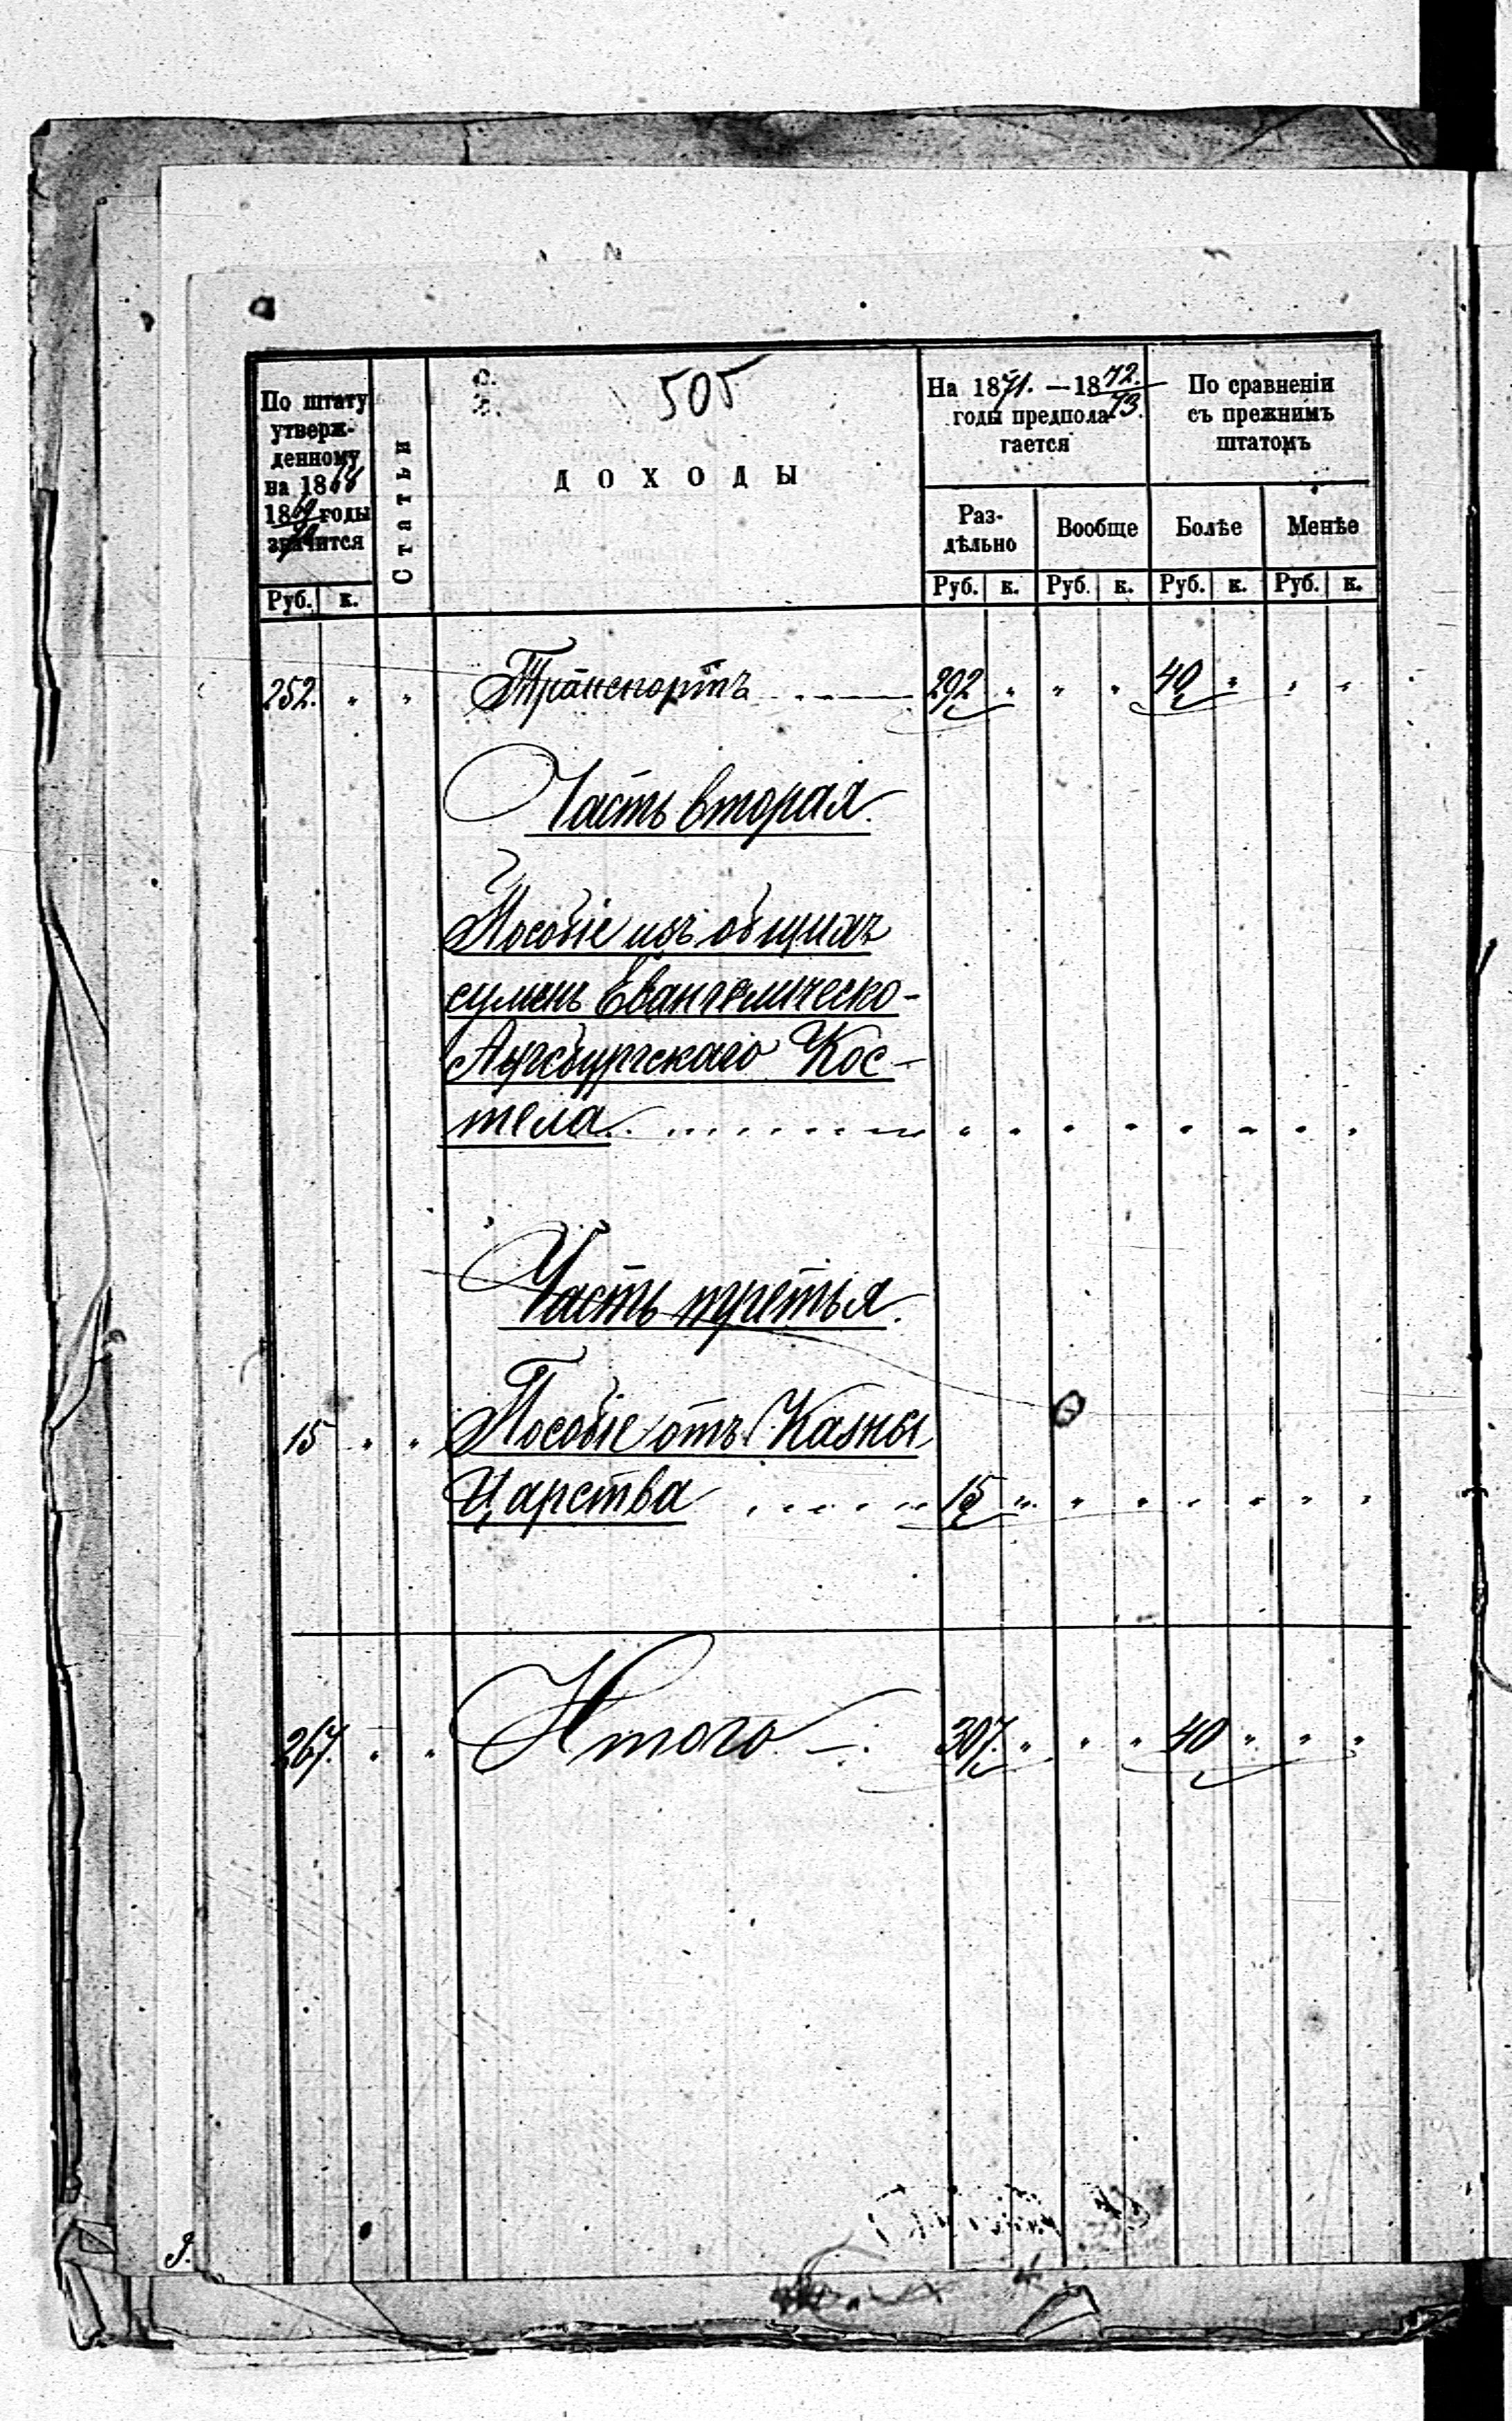 505
По штату
утверж-
денному
на 1868
1869 годы
70
значится
Статьи
ДОХОДЫ
На 1871. — 1872.
73.
годы предпола
гается
По сравненіи
съ прежнимъ
штатомъ
Раз-
дѣльно
Вообще
Болѣе
Менѣе
Руб. к. Руб. к. Руб. к. Руб. к. Руб. к.
252. " " Транспортъ 292 " " " 40 " " "
Часть вторая.
Пособіе изъ общихъ
суммъ Евангелическо-
Аугсбургскаго Кос-
тела. . . . . . . . . " " " " " " " "
Часть третья.
15 " " Пособіе отъ Казны
Царства . . . . . . 15 " " " " " " "
267. " " Итого — 307. " " " 40 " " "